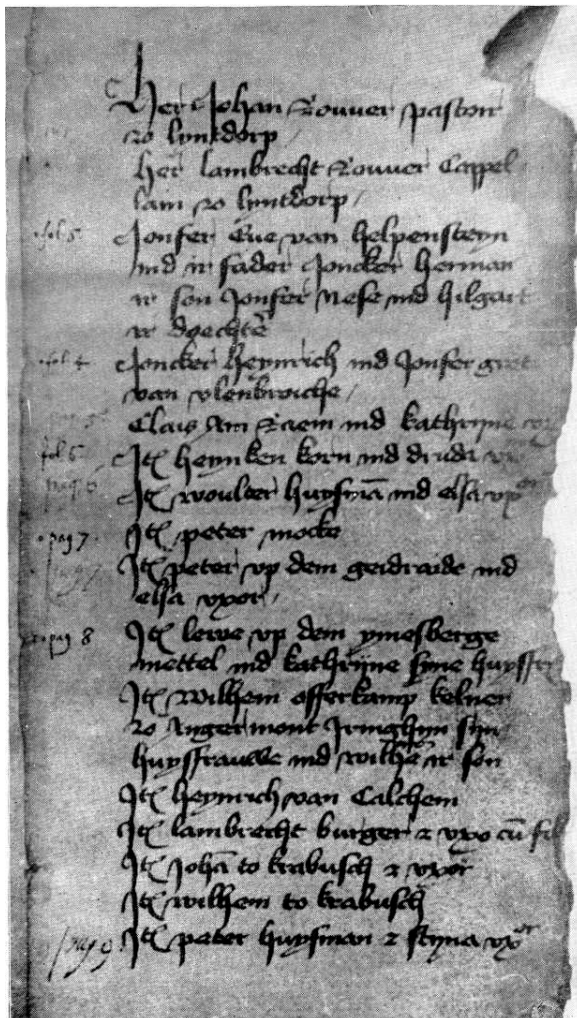 Her Johan Rouver pastoir
zo lyntdorp
her lambrecht Rouver Cappel
lain zo lyntdorp
fol 5 Jonfer Eve van helpensteyn
ind ir fader Joncker herman
ir son Jonfer Nese ind hilgart
ir doechtē
fol 4 Joncker heynrich ind Jonfer gret
van ulenbroiche
Clais Am ind kathryne
fol 6 Itē heynken korn ind druda
Itē woulter huysmā ind elsa uxor
pag 7 Itē peter mocke
Itē peter up dem geidraide ind
elsa uxor
pag 8 Itē lewe up dem ymesberge
mettel ind kathryne syne huysfr
Itē wilhem offerkamp kelner
zo Angermont Irmghyn syn
huysfrauwe ind wilhē ir son
Itē heynrich van Calchem
Itē lambrecht burger z uxo cū fil
Itē Johā to krabusch z uxor
Itē wilhem to krabusch
pag 9 Itē peter huysman z styna uxor